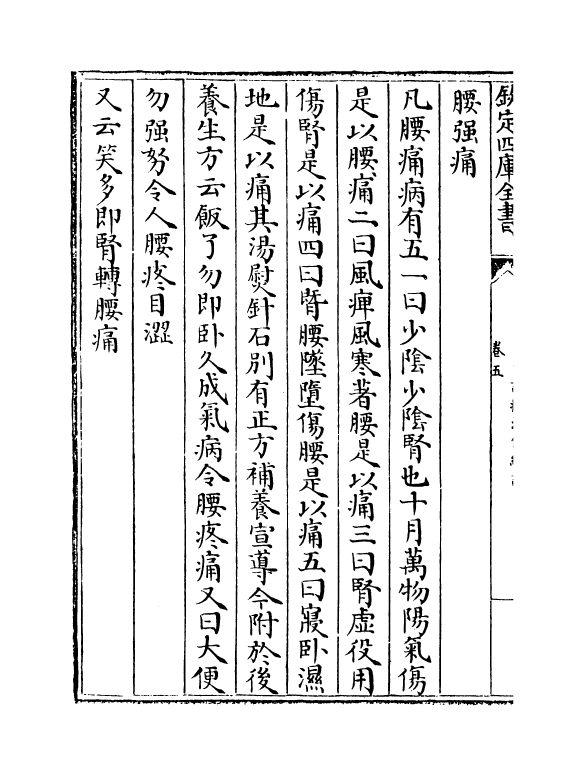 欽定四庫全書
卷五
腰强痛
凡腰痛病有五一曰少陰少陰腎也十月萬物陽氣傷
是以腰痛二曰風痺風寒著腰是以痛三曰腎虚役用
傷腎是以痛四曰䐴腰墜墮傷腰是以痛五曰寢卧濕
地是以痛其湯熨針石别有正方補養宣導今附於後
養生方云飯了勿即卧久成氣病令腰疼痛又曰大便
勿强努令人腰疼目澀
又云笑多即腎轉腰痛